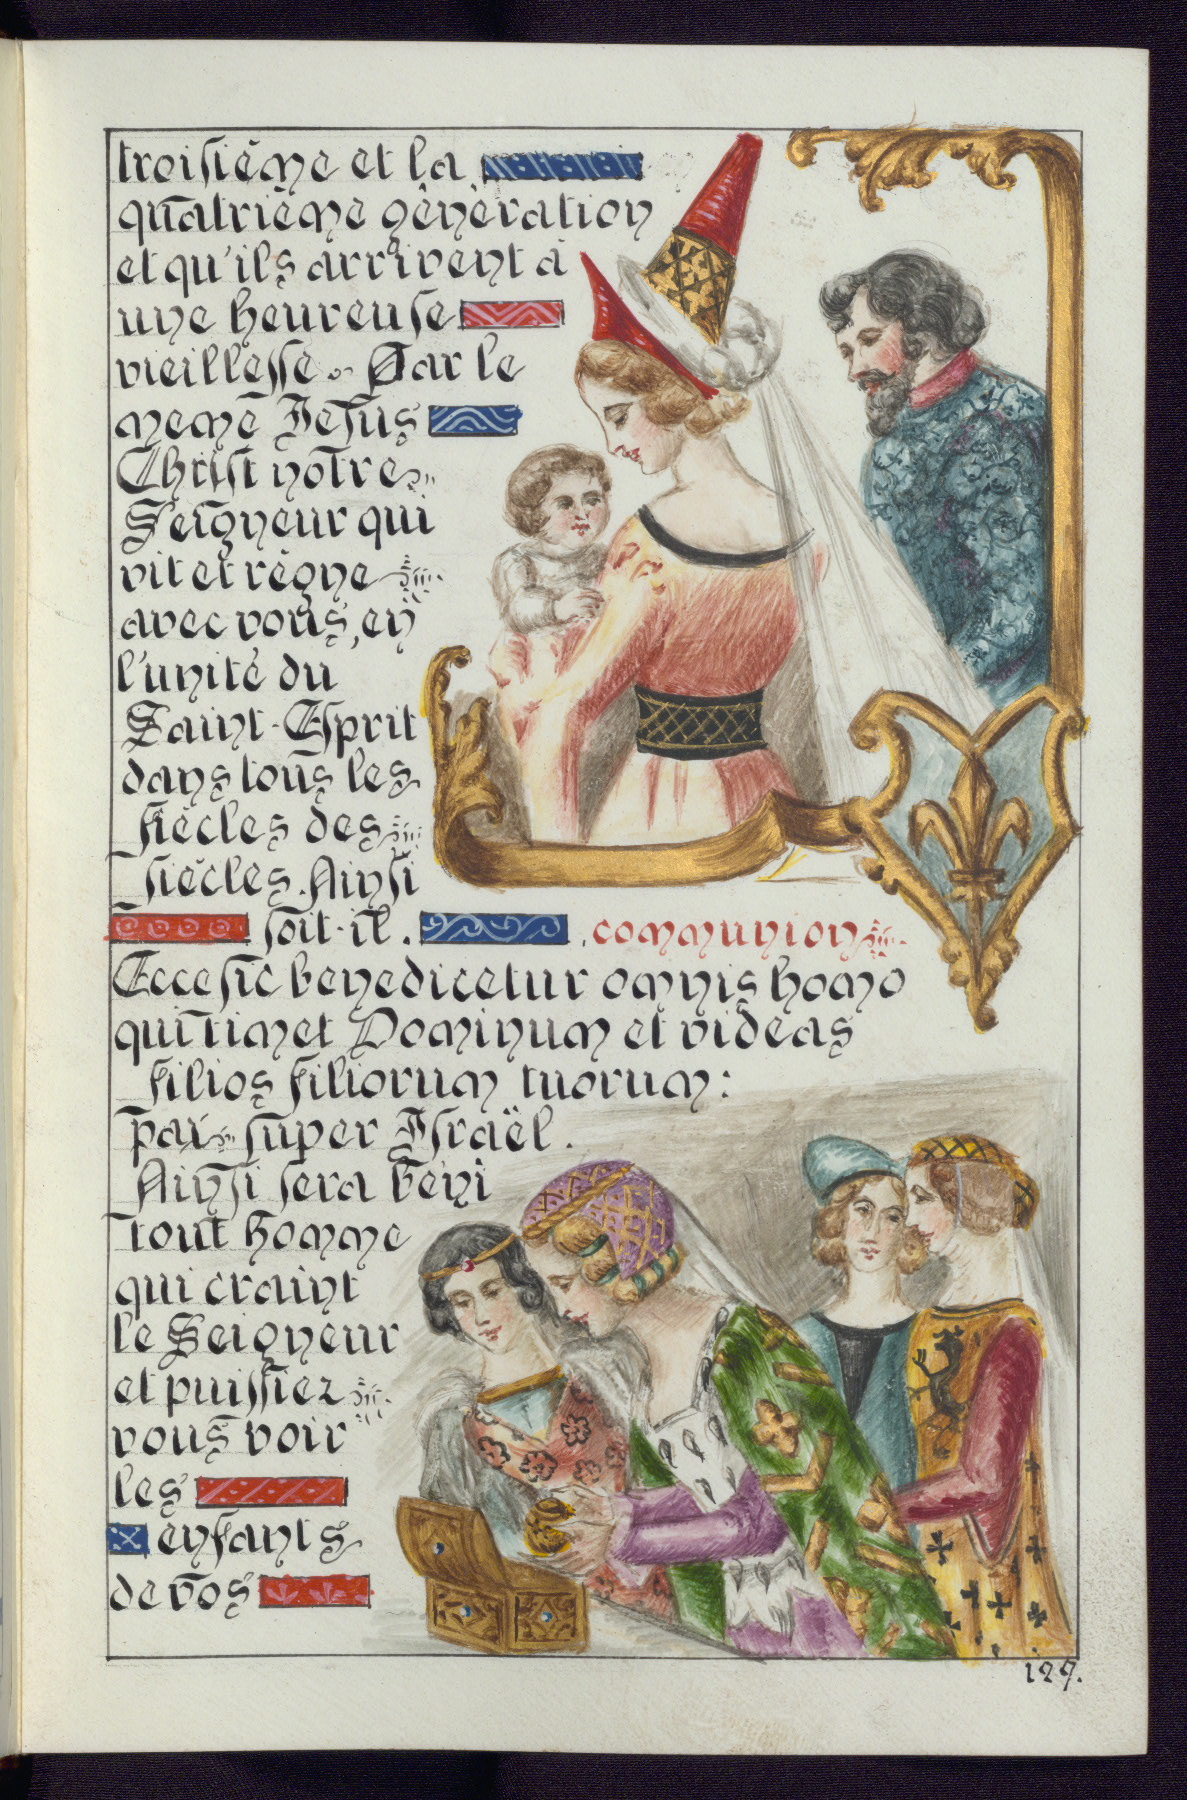 troisième et la
quatrième génération
et qu'ils arrivent à
une heureuse
vieillesse. Par le
meme Jesus
Christ notre
Seigneur qui
vit et règne
avec vous, en
l'unité du
Saint-Esprit
dans tous les
siècles des
siècles. Ainsi
soit-il. communion
Ecce sic benedicetur omnis homo
qui timet Dominum et videas
filios filiorum tuorum:
pax super Israël.
Ainsi sera béni
tout homme
qui craint
le Seigneur
et puissiez
vous voir
les
enfants
de vos
127.